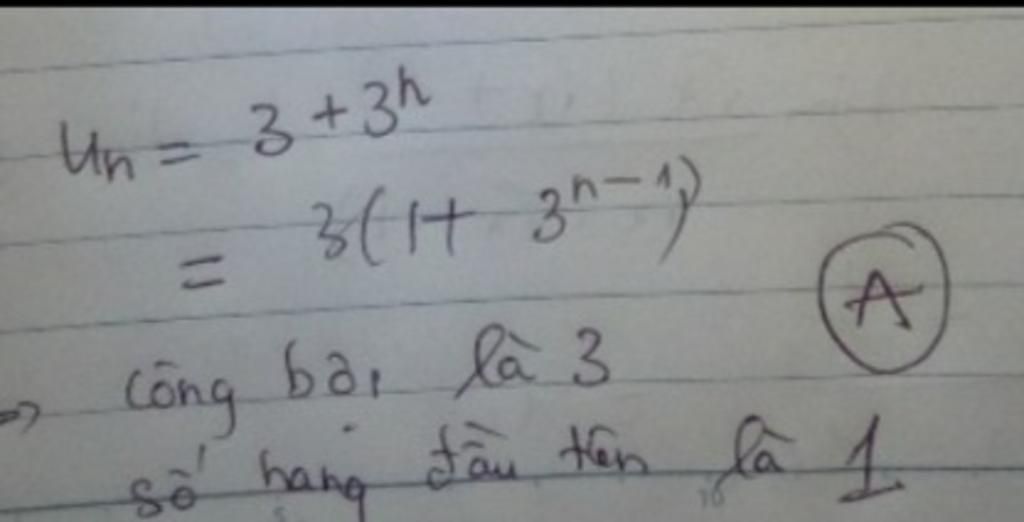 Un = 3 + 3^n
= 3(1 + 3^{n-1})
A
=> công bội là 3
số hạng đầu tiên là 1